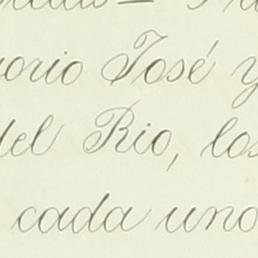 orio José y
del Rio, los
cada uno